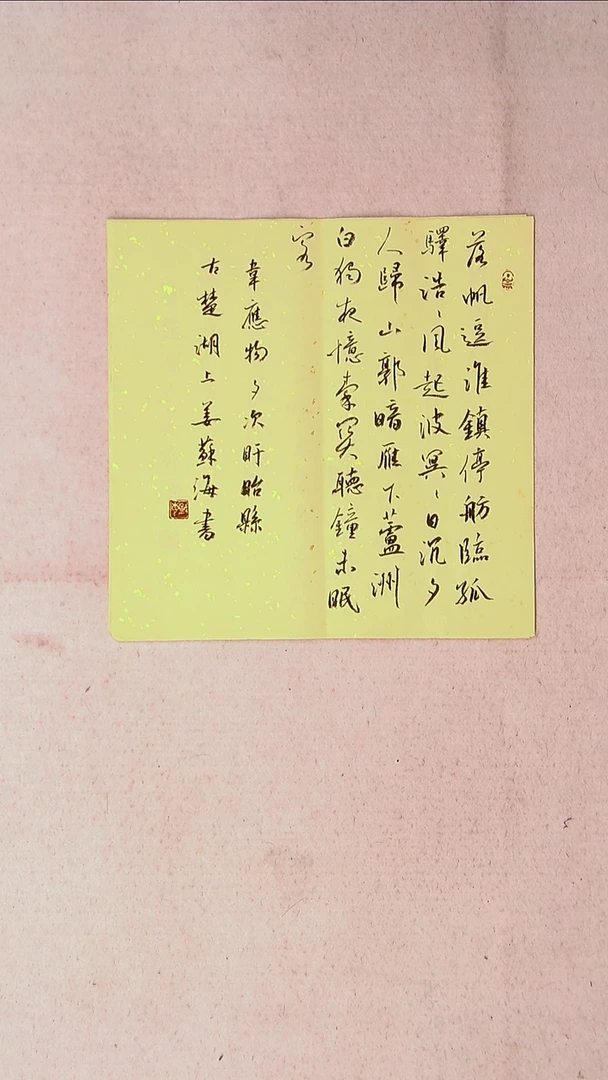 落帆逗淮鎮停舫臨孤
驛浩〻風起波冥〻日沉夕
人歸山郭暗雁下蘆洲
白獨夜憶秦関聽鐘未眠
客
韋應物夕次盱眙縣
古楚湖上姜蘇海書